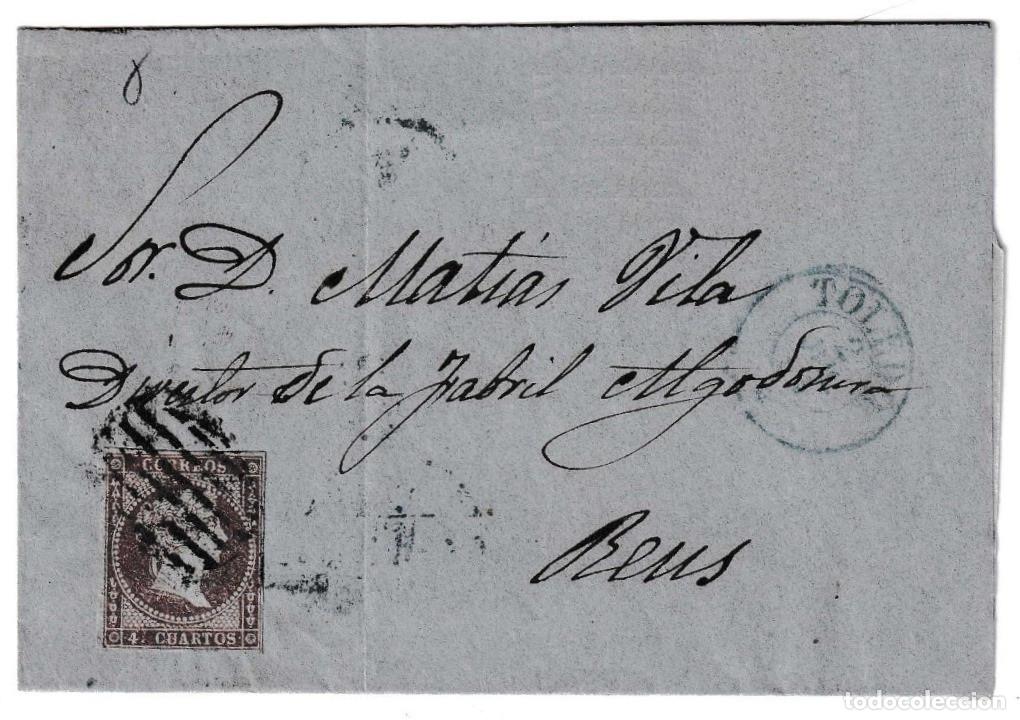 8
Sor. D. Matías Vila
Director de la Fabril Algodonera
Reus
TOLEDO
CORREOS
4 CUARTOS
todocoleccion